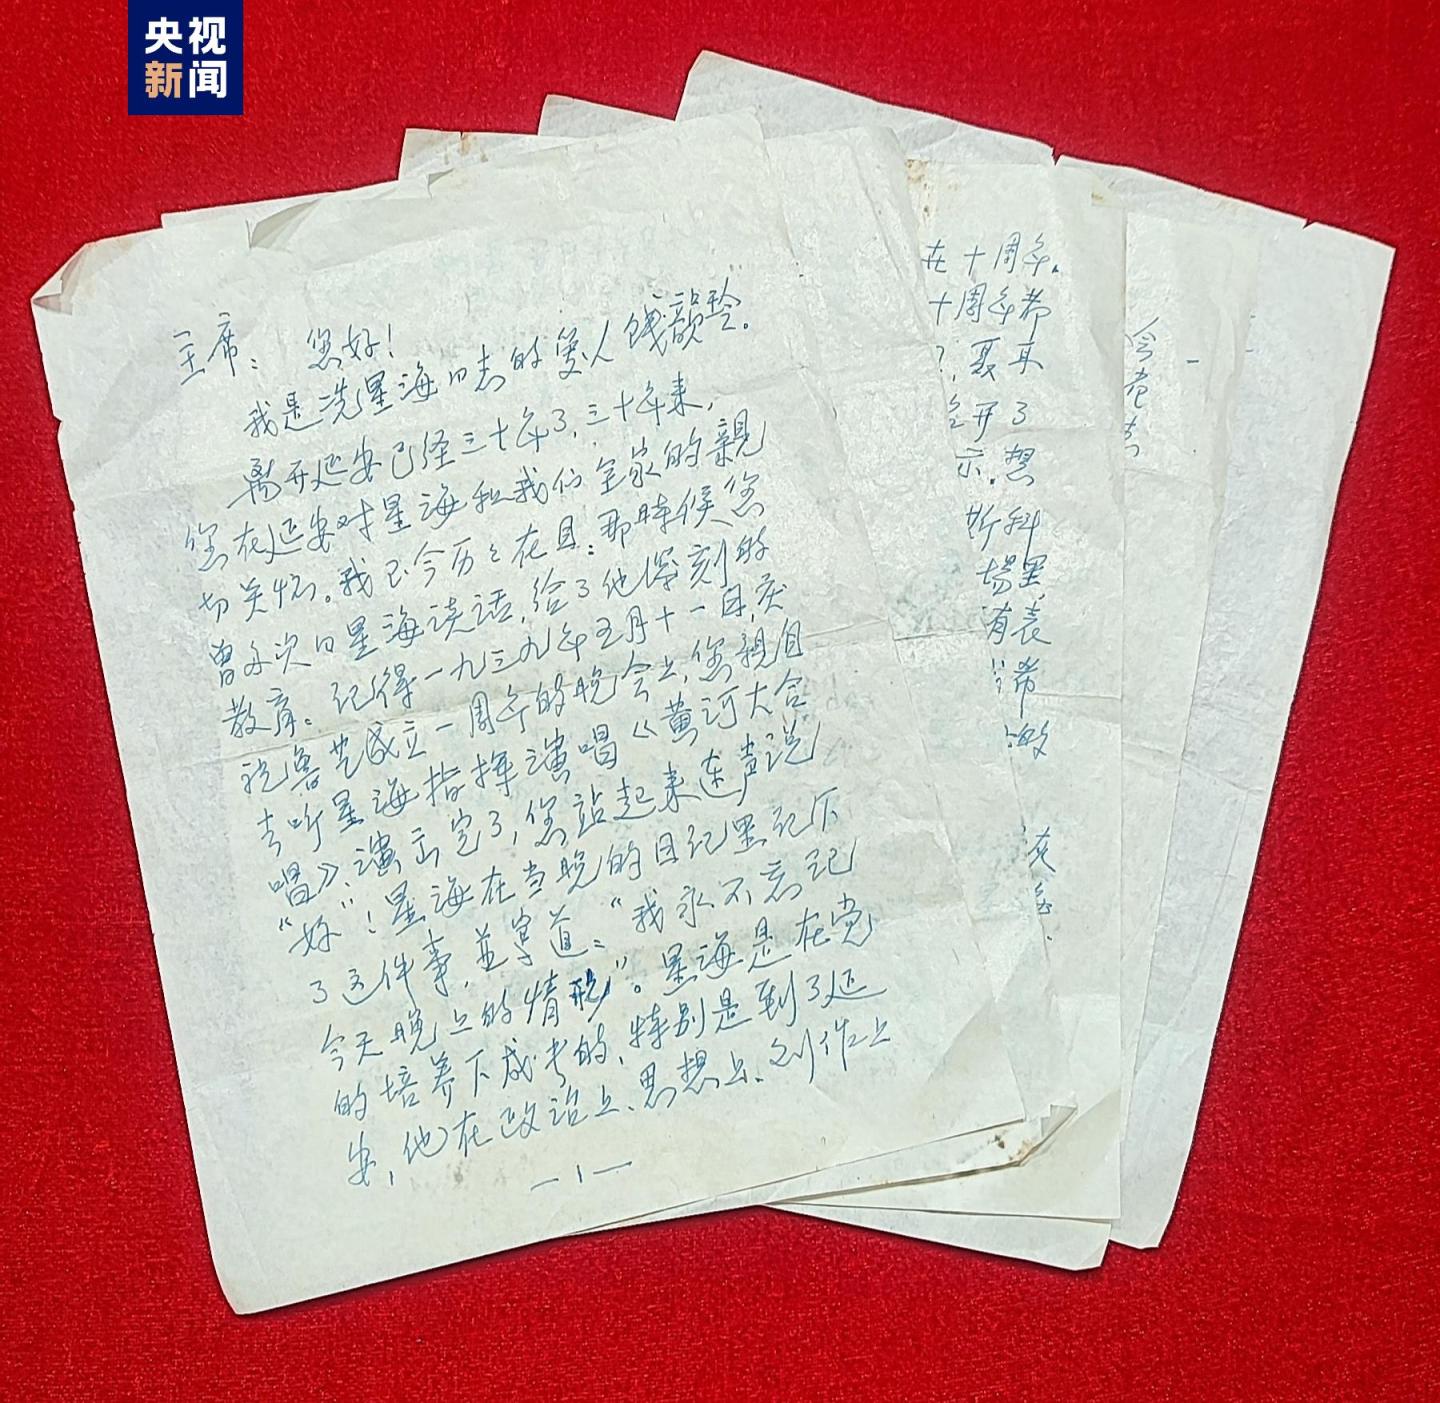 央视
新闻
主席：您好！
我是冼星海同志的爱人钱韵玲。
离开延安已经三十年了，三十年来，
您在延安对星海和我们全家的亲
切关怀。我至今历历在目：那时候您
曾多次同星海谈话，给了他深刻的
教育。记得一九三九年五月十一日，庆
祝鲁艺成立一周年的晚会上，您亲自
去听星海指挥演唱《黄河大合
唱》，演出完了，您站起来连声说
“好”！星海在当晚的日记里记下
了这件事，并写道：“我永不忘记
今天晚上的情形”。星海是在党
的培养下成长的，特别是到了延
安，他在政治上、思想上、创作上
—1—
在十周年。
十周年都
？，聂耳
开了
示。想
斯科
场里
有表
希
敏